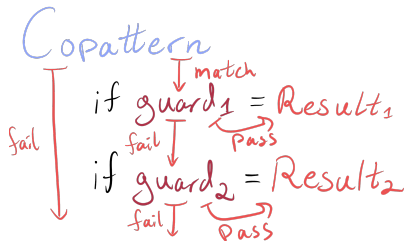 Copattern
match
if guard₁ = Result₁
fail fail pass
if guard₂ = Result₂
fail pass